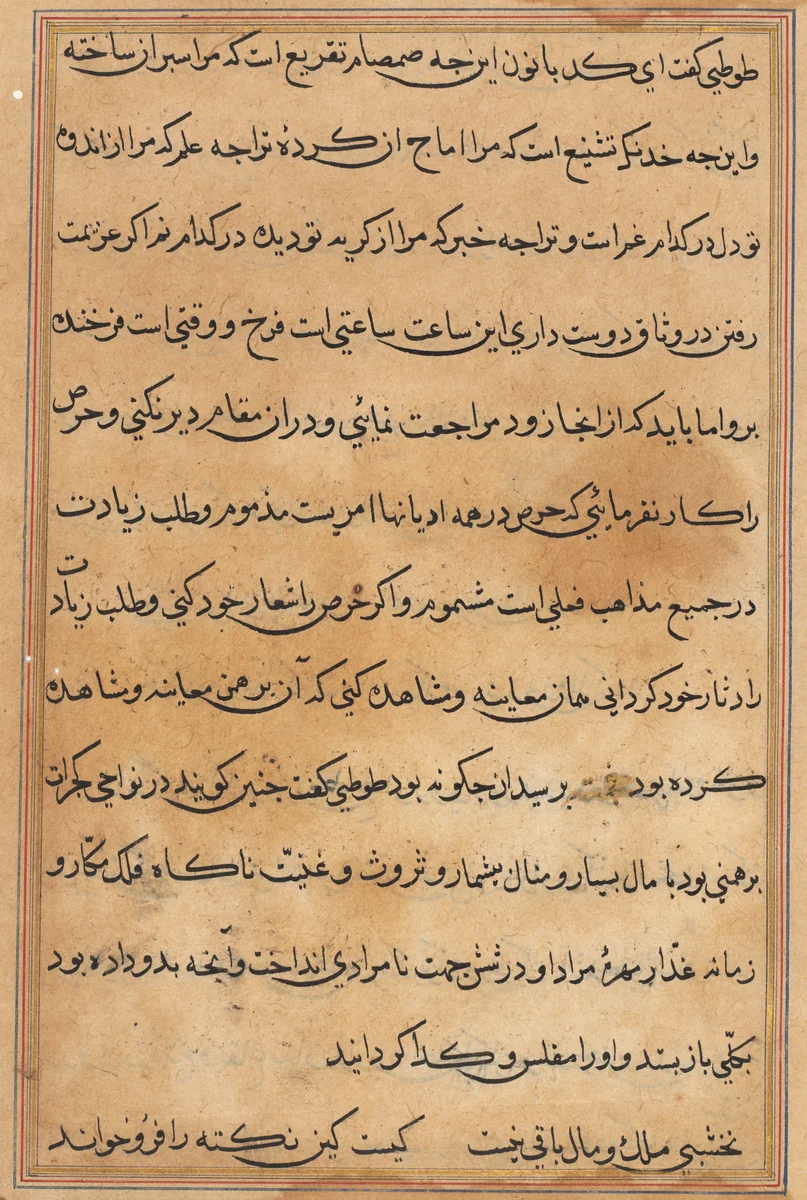 طوطي كفت اي كد بانون اين جه صمصام تقريع است كه مرا سبر ان ساخته
و اين جه خدنك تشنيع است كه مرا اماج ان كردهٔ ترا جه علم كه مرا از اندوه
تو دل در كدام غم است و ترا جه خبر كه مرا از كريه تو ديده در كدام نم اكر عزيمت
رفتن در وثاق دوست داري اين ساعت ساعتي است فرخ و وقتي است فرخنده
برو اما بايد كه از انجا زود مراجعت نمائي و دران مقام دير نكني و حرص
را كار نفرمائي كه حرص در همه اديانها امريست مذموم و طلب زيادت
در جميع مذاهب فعلي است مشموم و اكر حرص را شعار خود كني و طلب زيادت
را دثار خود كرداني همان معاينه و مشاهده كني كه آن برهمن معاينه و مشاهده
كرده بود برسيد ان جكونه بود طوطي كفت جنين كويند در نواحي كجرات
برهمني بود با مال بسيار و منال بيشمار و ثروث و غنيّت ناكاه فلك مكّار و
زمانه غدّار مهرهٔ مراد او در شش جهت نامرادي انداخت و آنجه بدو داده بود
بكلّي باز بستد و او را مفلس و كدا كردانيد
نخشبي ملك و مال باقي نيست كيست كين نكته را فرو خواند